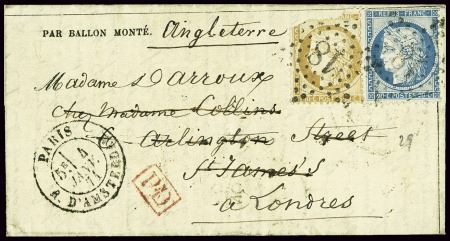 PAR BALLON MONTÉ.
Angleterre
Madame Darroux
chez Madame Collins
Arlington Street
St James's
à Londres
PARIS
5E 4
JANV.
71
R. D'AMSTERDAM
PD
18
29